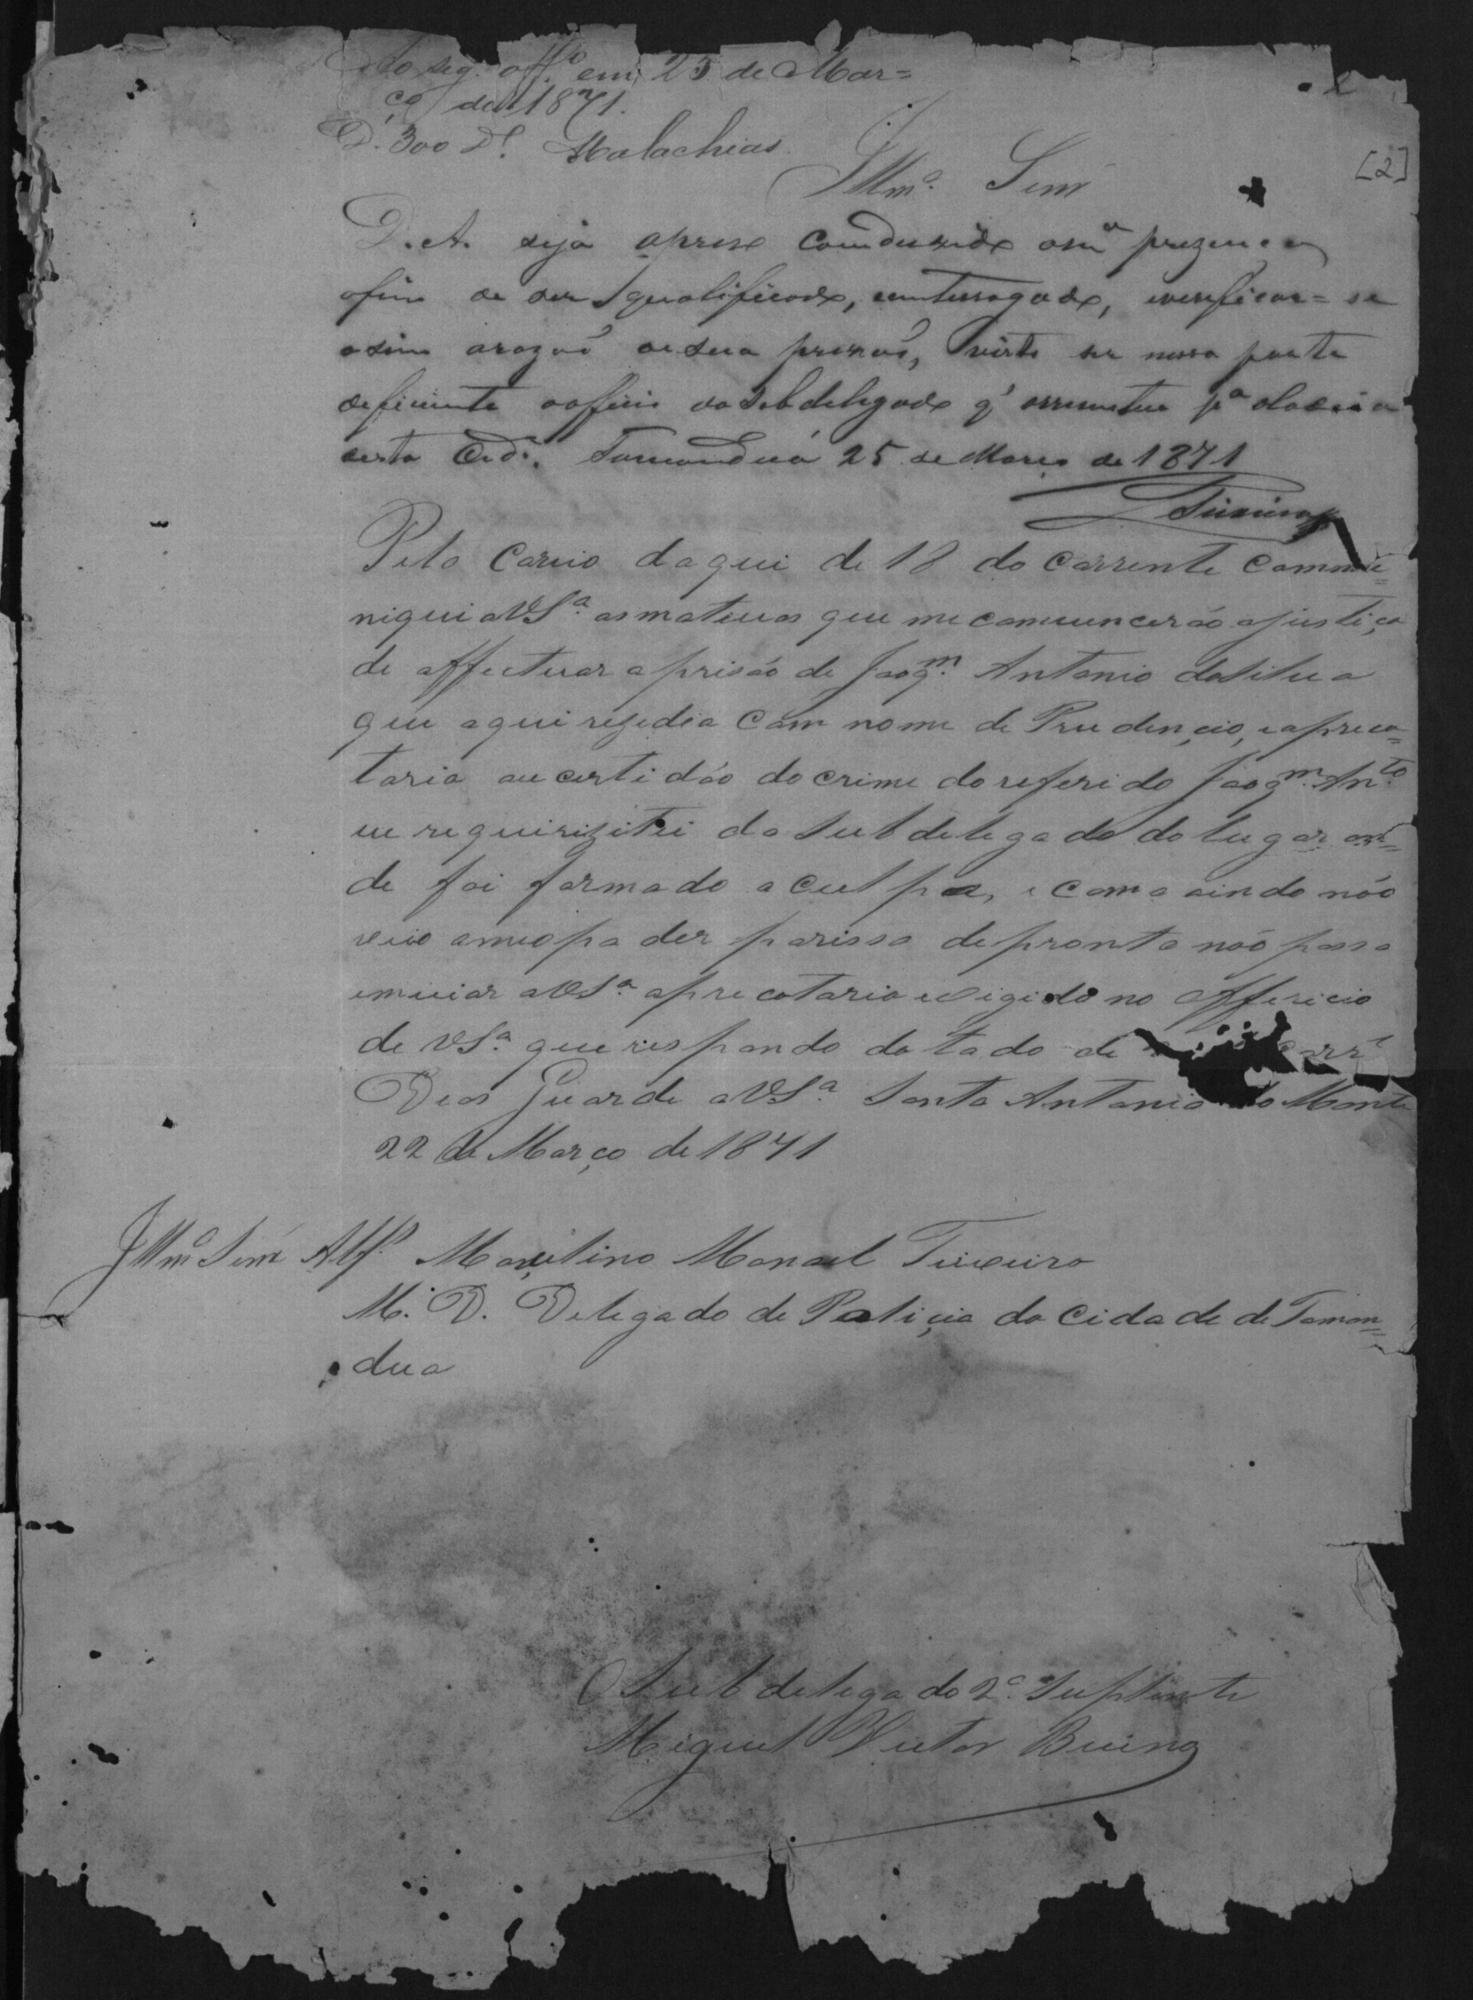 Ao seg. off.º em 25 de Mar=
ço de 1871.
D. 300 Dl. Malachias
[2]
Illmo. Senr
D. A. seja o preso comduzido a m.ª prezença
afim de ser qualificado, e interrogado, e verificar=se
asim a razaõ de sua prizaõ, visto ser nessa parte
deficiente o officio do Subdelegado q' o remetteu p.ª a Cadeia
desta Cid.e. Tamanduá 25 de Março de 1871
Teixeira
Pelo Coreio daqui de 18 do Corrente Commu=
niquei a VSª. os motivos que me comvencerão a justiça
de affectuar a prisão de Joaqm. Antonio da Silva
que aqui rezedia Com nome de Prudençio, e a preca=
toria ou certidão do crime do referido Joaqm. Anto.
eu requirizitei do Subdelegado do lugar on=
de foi formado a culpa, e como ainda não
veio a meo poder por isso de pronto não posso
emviar a VSª. a precatoria exigido no Officio
de VSª. que respondo datado de Corre
Deos Guarde a VSª. Santo Antonio do Monte
22 de Março de 1871
Illmo Senr Alfs. Marçilino Manoel Teixeira
M. D. Delegado de Poliçia da Cidade de Taman=
dua
O Subdelegado 2º. Suplente
Miguel Victor Bueno